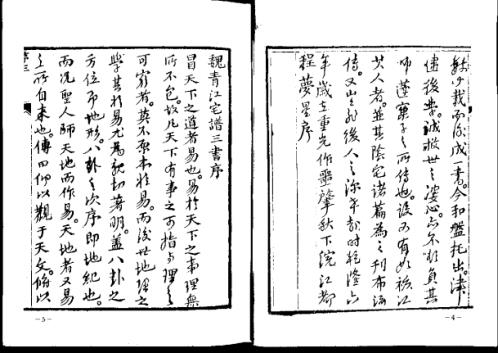 我而作成一書。今和盤托出。津
後学。誠救世之婆心。不負其
師蓬子之所传也。有如江
其人者。並其陰宅诸篇为之刊布流
传。又後人之深幸時乾隆六
年歲在重光作噩肇秋下浣江都
程夢星序
—4—
魏青江宅譜三書序
冒天下之道者易也。易於天下之事理無
所不包。故凡天下有事之可指与理之
可窮者。莫不原本於易。而後世地理之
學其於易尤爲親切著明。蓋八卦之
方位即地形。八卦之次序即地紀也。
而况聖人師天地而作易。天地者又易
之所自来也。傳曰仰以觀于天文。俯以
—5—